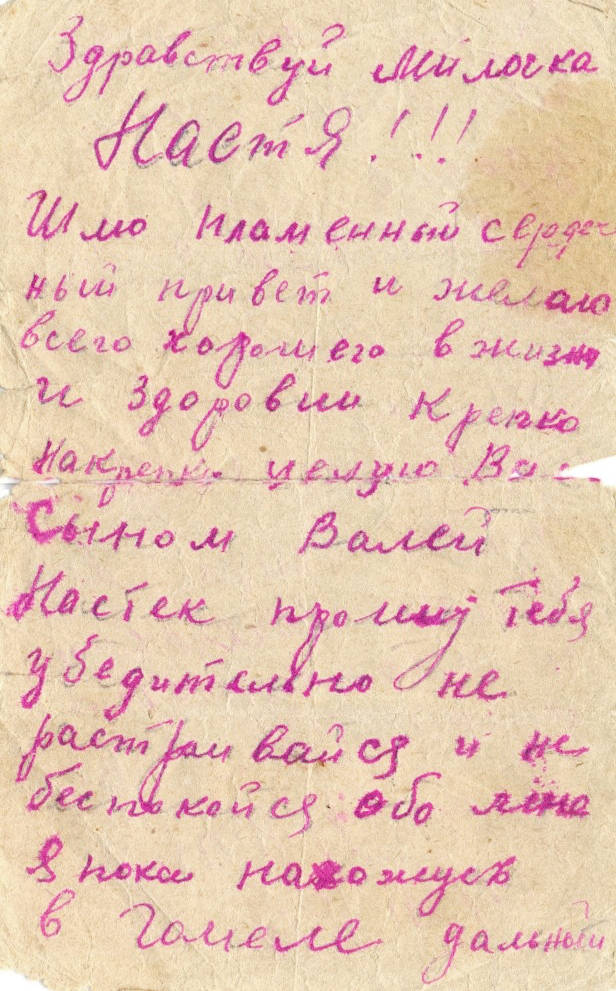 Здравствуй Милочка
Настя!!!
Шлю пламенный сердеч
ный привет и желаю
всего хорошего в жизни
и здоровии Крепко
накрепко целую Вас
Сыном Валей
Настек прошу тебя
убедительно не
растраивайся и не
беспокойся обо мне
Я пока нахожусь
в Гомеле дальный